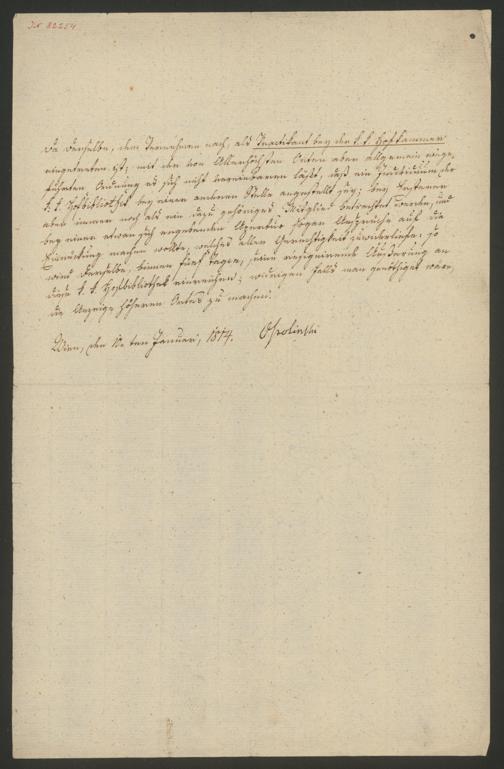 N 82254
Da derselbe, dem Vernehmen nach, als Practikant bey der k. k. Hofkammer
eingetreten ist; mit der von Allerhöchsten Orten aber allgemein einge-
führten Ordnung es sich nicht vereinbaren läßt, daß ein Individuum der
k. k. Hofbibliothek bey einer anderen Stelle angestellt sey; bey Ersterer
aber immer noch als ein dazu gehöriges Mitglied betrachtet werde, und
bey einer etwan sich ergebenden Apertur sogar Ansprüche auf die
Einrückung machen wollte, welches allem Gerechtigkeit zuwiderliefe: so
wird derselbe, binnen fünf Tagen, seine resignirende Äußerung an
diese k. k. Hofbibliothek einreichen; widrigen Falls man genöthiget wäre,
die Anzeige höheren Ortes zu machen.
Wien, den ten Januari, 1814. Ossolinski